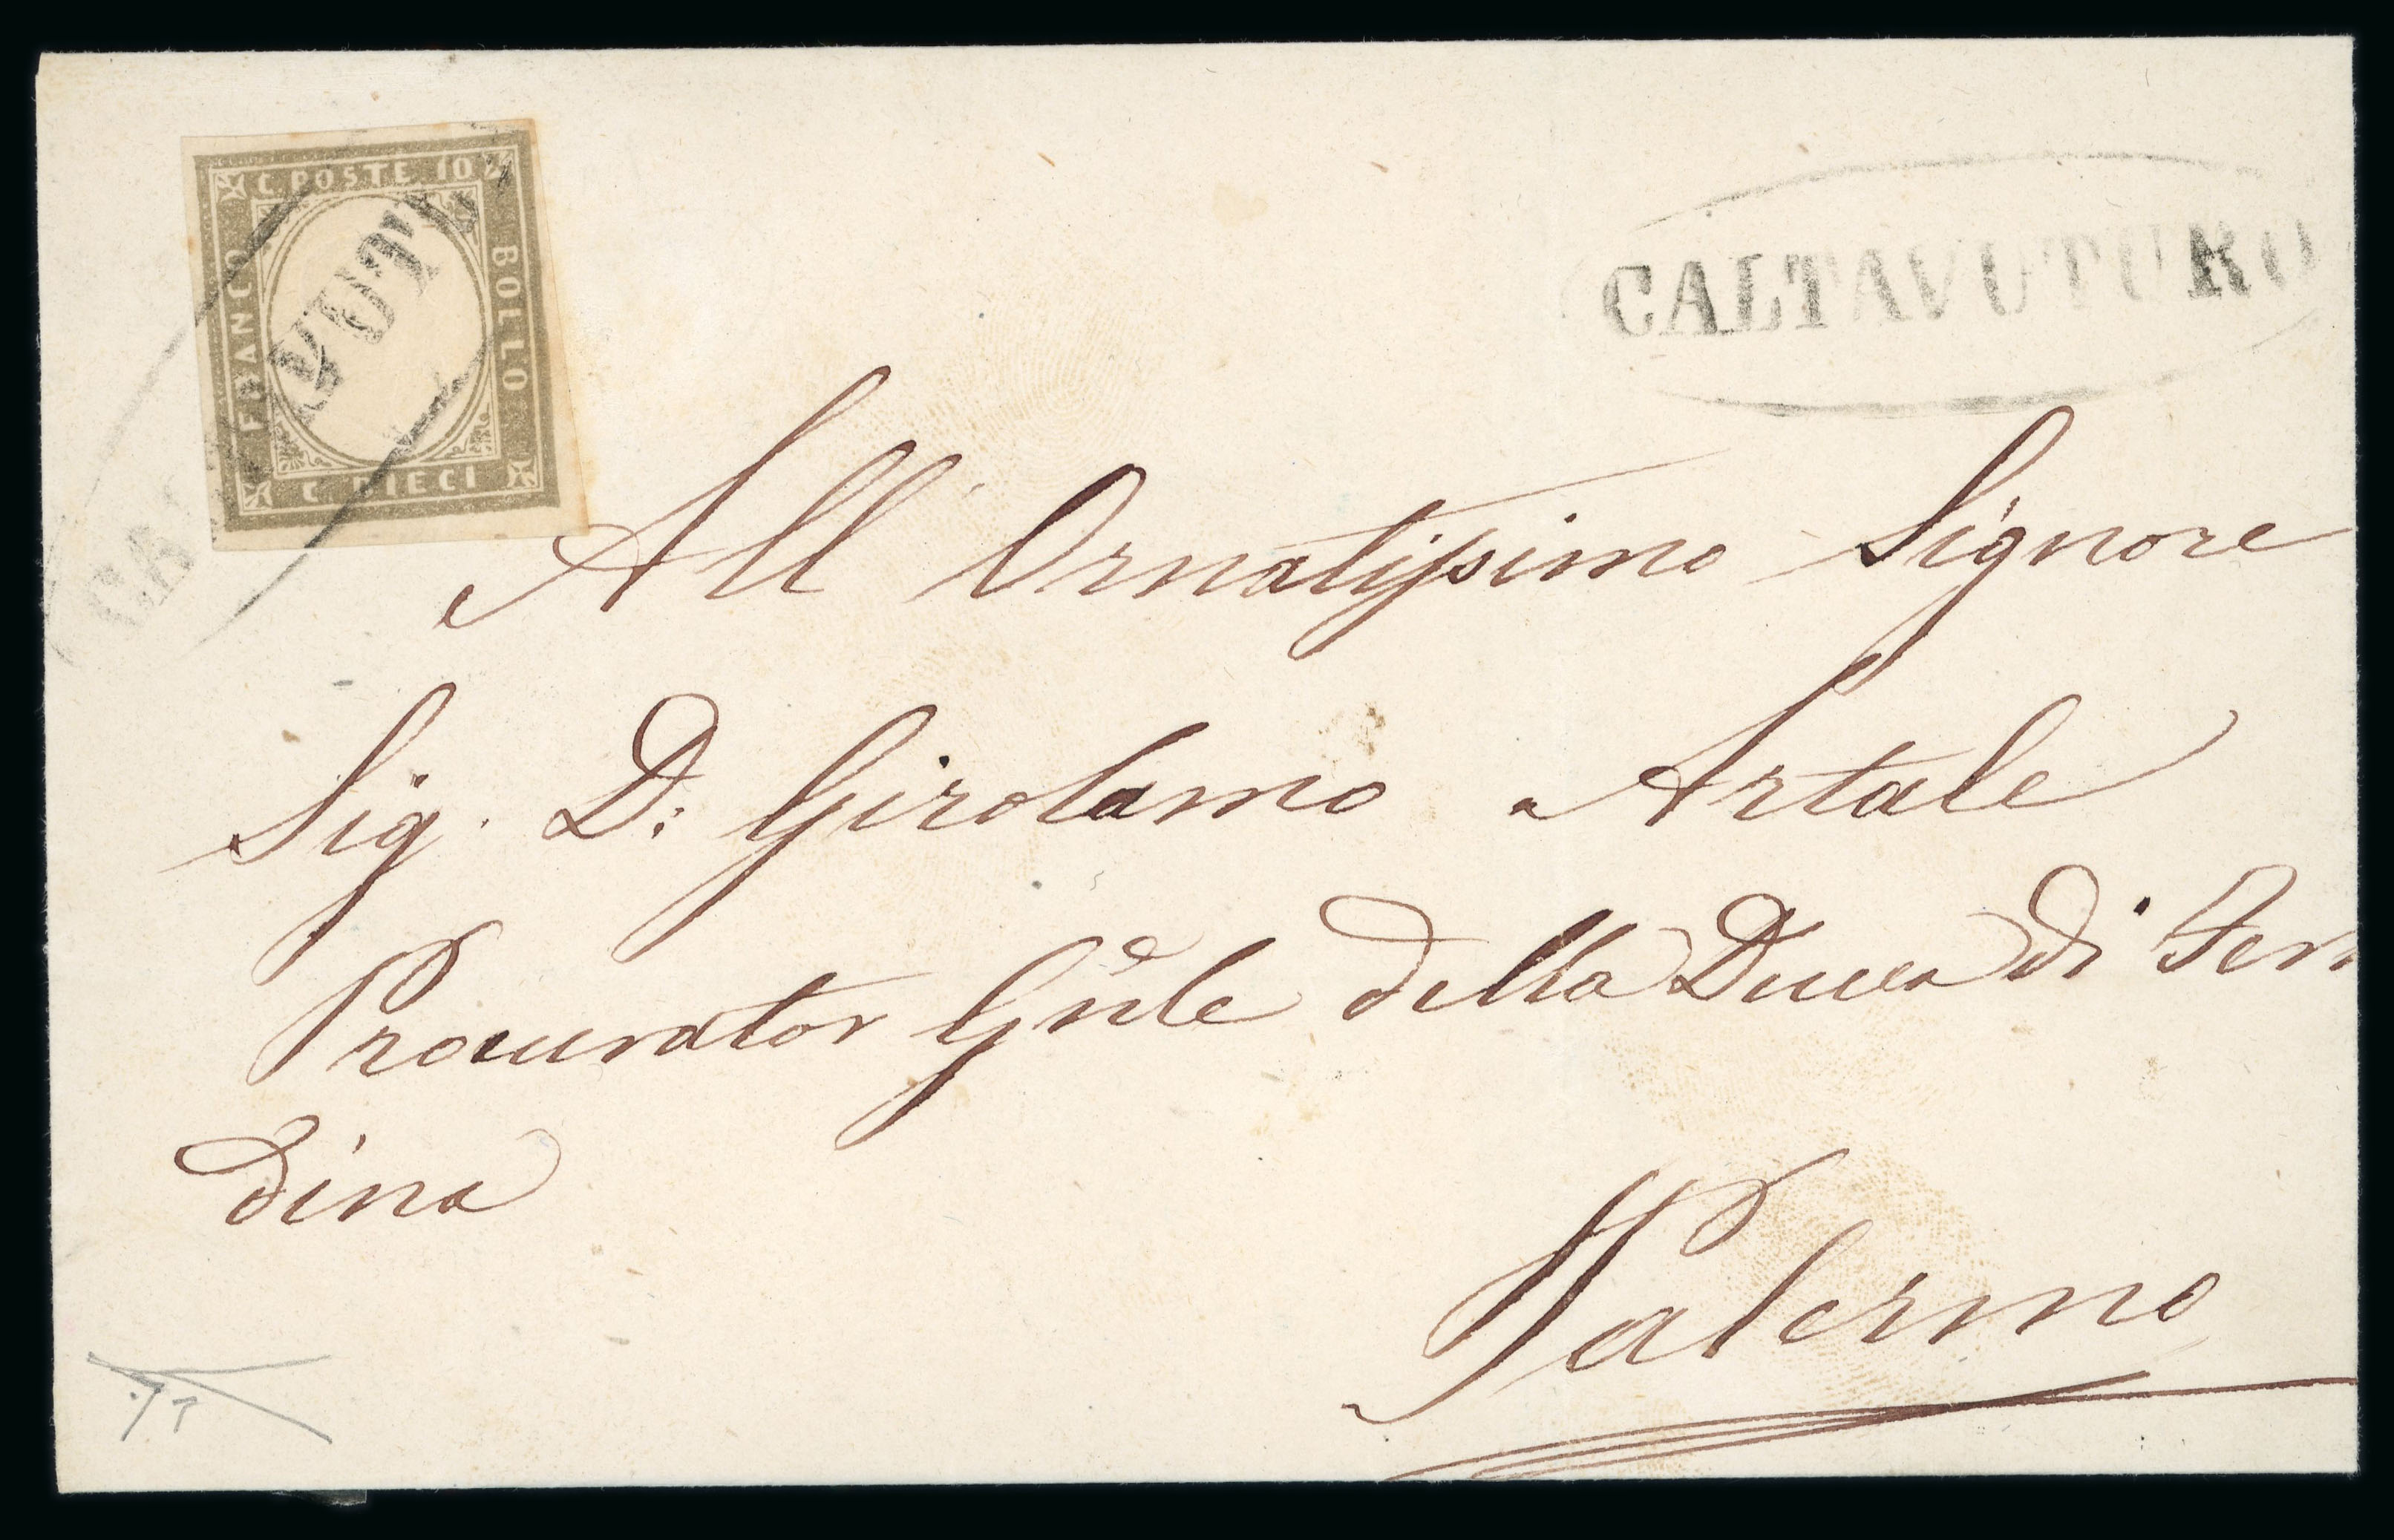 C. POSTE 10
FRANCO
BOLLO
C. DIECI
VUT
CALTAVUTURO
All' Ornatissimo Signore
Sig. D: Girolamo Artale
Procurator Gnle della Duca di Fern
dina
Palermo